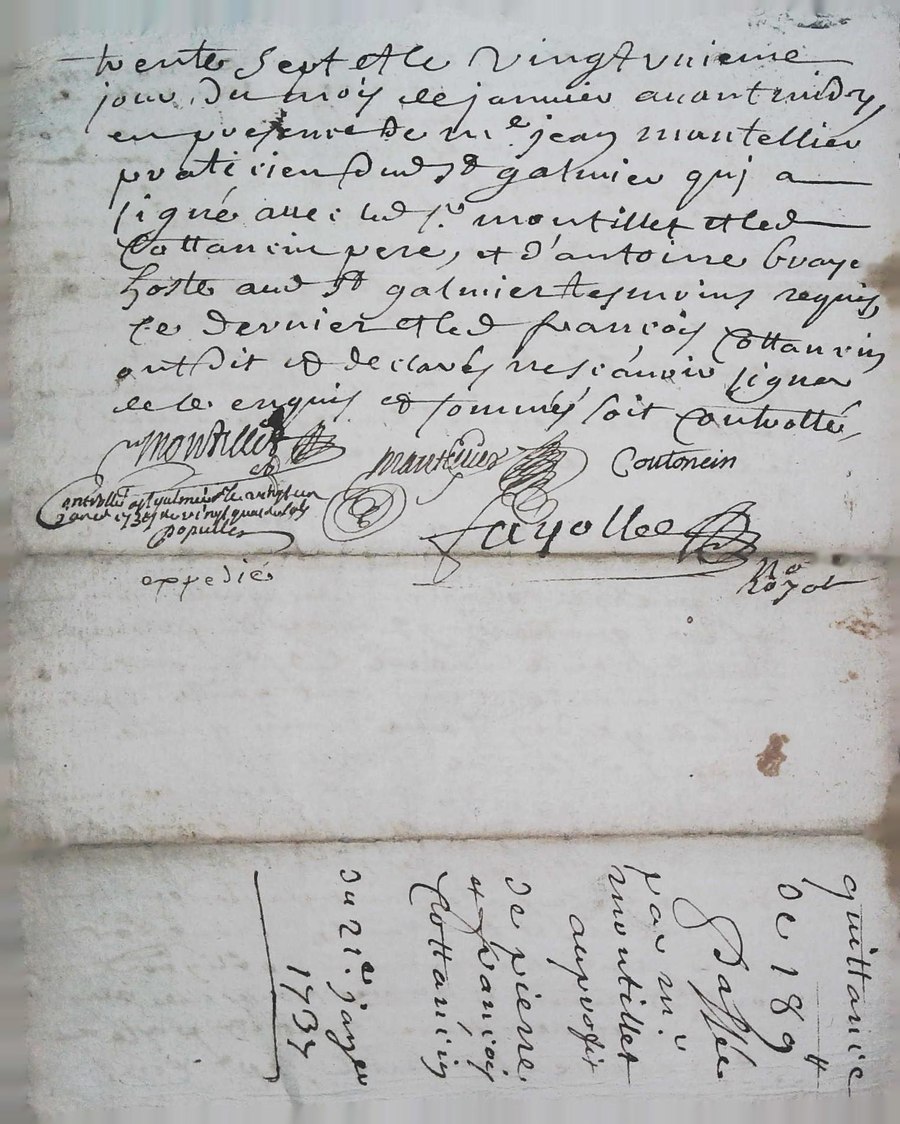 trente sept et le vingt unieme
jour du mois de janvier avant midy,
en presence de me jean mantellier
praticien dud st galmier qui a
signé avec led sr montillet et led
Cottancin pere, et d'antoine
hoste aud st galmier tesmoins requis,
ce dernier et led françois Cottancin
ont dit et declarés ne scavoir signer
de ce enquis et sommés soit Controllé,
Montillet
mantellier
Coutancin
Controllé a st galmier le vingt un
Populle
fayolle
expedié
No Royal
quittance
de 189 ₶
passée
par mr
montillet
au profit
de pierre
et françois
Cottancin
du 21e janvier
1737